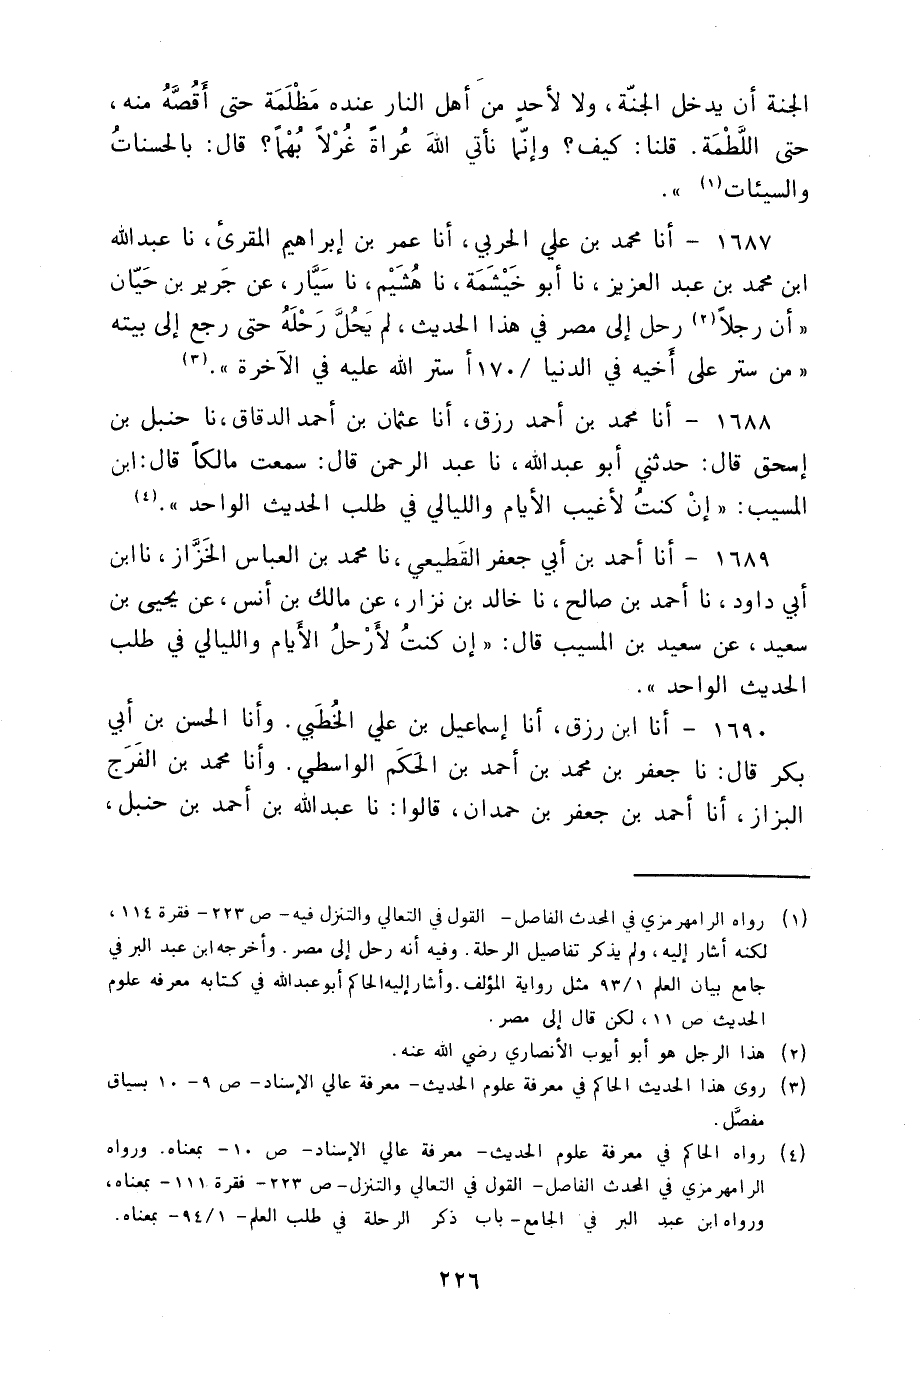 الجنة أن يدخل الجنّة، ولا لأحدٍ من أهل النار عنده مَظْلَمَة حتى أَقُصَّهُ منه،
حتى اللَّطْمَة. قلنا: كيف؟ وإنّما نأتي اللهَ عُراةً غُرْلاً بُهْماً؟ قال: بالحسناتُ
والسيئات(١) ».
١٦٨٧ - أنا محمد بن علي الحربي، أنا عمر بن إبراهيم المقرئ، نا عبدالله
ابن محمد بن عبد العزيز، نا أبو خَيْثَمَة، نا هُشَيْم، نا سَيَّار، عن جَرير بن حَيّان
« أن رجلاً(٢) رحل إلى مصر في هذا الحديث، لم يَحُلَّ رَحْلَهُ حتى رجع إلى بيته
« من ستر على أَخيه في الدنيا /١٧٠أ ستر الله عليه في الآخرة ».(٣)
١٦٨٨ - أنا محمد بن أحمد رزق، أنا عثمان بن أحمد الدقاق، نا حنبل بن
إسحق قال: حدثني أبو عبدالله، نا عبد الرحمن قال: سمعت مالكاً قال: ابن
المسيب: « إنْ كنتُ لأغيب الأيام والليالي في طلب الحديث الواحد ».(٤)
١٦٨٩ - أنا أحمد بن أبي جعفر القَطيعي، نا محمد بن العباس الخَزَّاز، نا ابن
أبي داود، نا أحمد بن صالح، نا خالد بن نزار، عن مالك بن أنس، عن يحيى بن
سعيد، عن سعيد بن المسيب قال: « إن كنتُ لأَرْحلُ الأيام والليالي في طلب
الحديث الواحد ».
١٦٩٠ - أنا ابن رزق، أنا إسماعيل بن علي الخُطَبي. وأنا الحسن بن أبي
بكر قال: نا جعفر بن محمد بن أحمد بن الحَكَم الواسطي. وأنا محمد بن الفَرَج
البزاز، أنا أحمد بن جعفر بن حمدان، قالوا: نا عبدالله بن أحمد بن حنبل،
(١) رواه الرامهرمزي في المحدث الفاصل- القول في التعالي والتنزل فيه- ص ٢٢٣- فقرة ١١٤،
لكنه أشار إليه، ولم يذكر تفاصيل الرحلة. وفيه أنه رحل إلى مصر. وأخرجه ابن عبد البر في
جامع بيان العلم ٩٣/١ مثل رواية المؤلف. وأشار إليه الحاكم أبو عبدالله في كتابه معرفه علوم
الحديث ص ١١، لكن قال إلى مصر.
(٢) هذا الرجل هو أبو أيوب الأنصاري رضي الله عنه.
(٣) روى هذا الحديث الحاكم في معرفة علوم الحديث- معرفة عالي الإسناد- ص ٩- ١٠ بسياق
مفصَّل.
(٤) رواه الحاكم في معرفة علوم الحديث- معرفة عالي الإسناد- ص ١٠- بمعناه. ورواه
الرامهرمزي في المحدث الفاصل- القول في التعالي والتنزل- ص ٢٢٣- فقرة ١١١- بمعناه،
ورواه ابن عبد البر في الجامع- باب ذكر الرحلة في طلب العلم- ٩٤/١- بمعناه.
٢٢٦